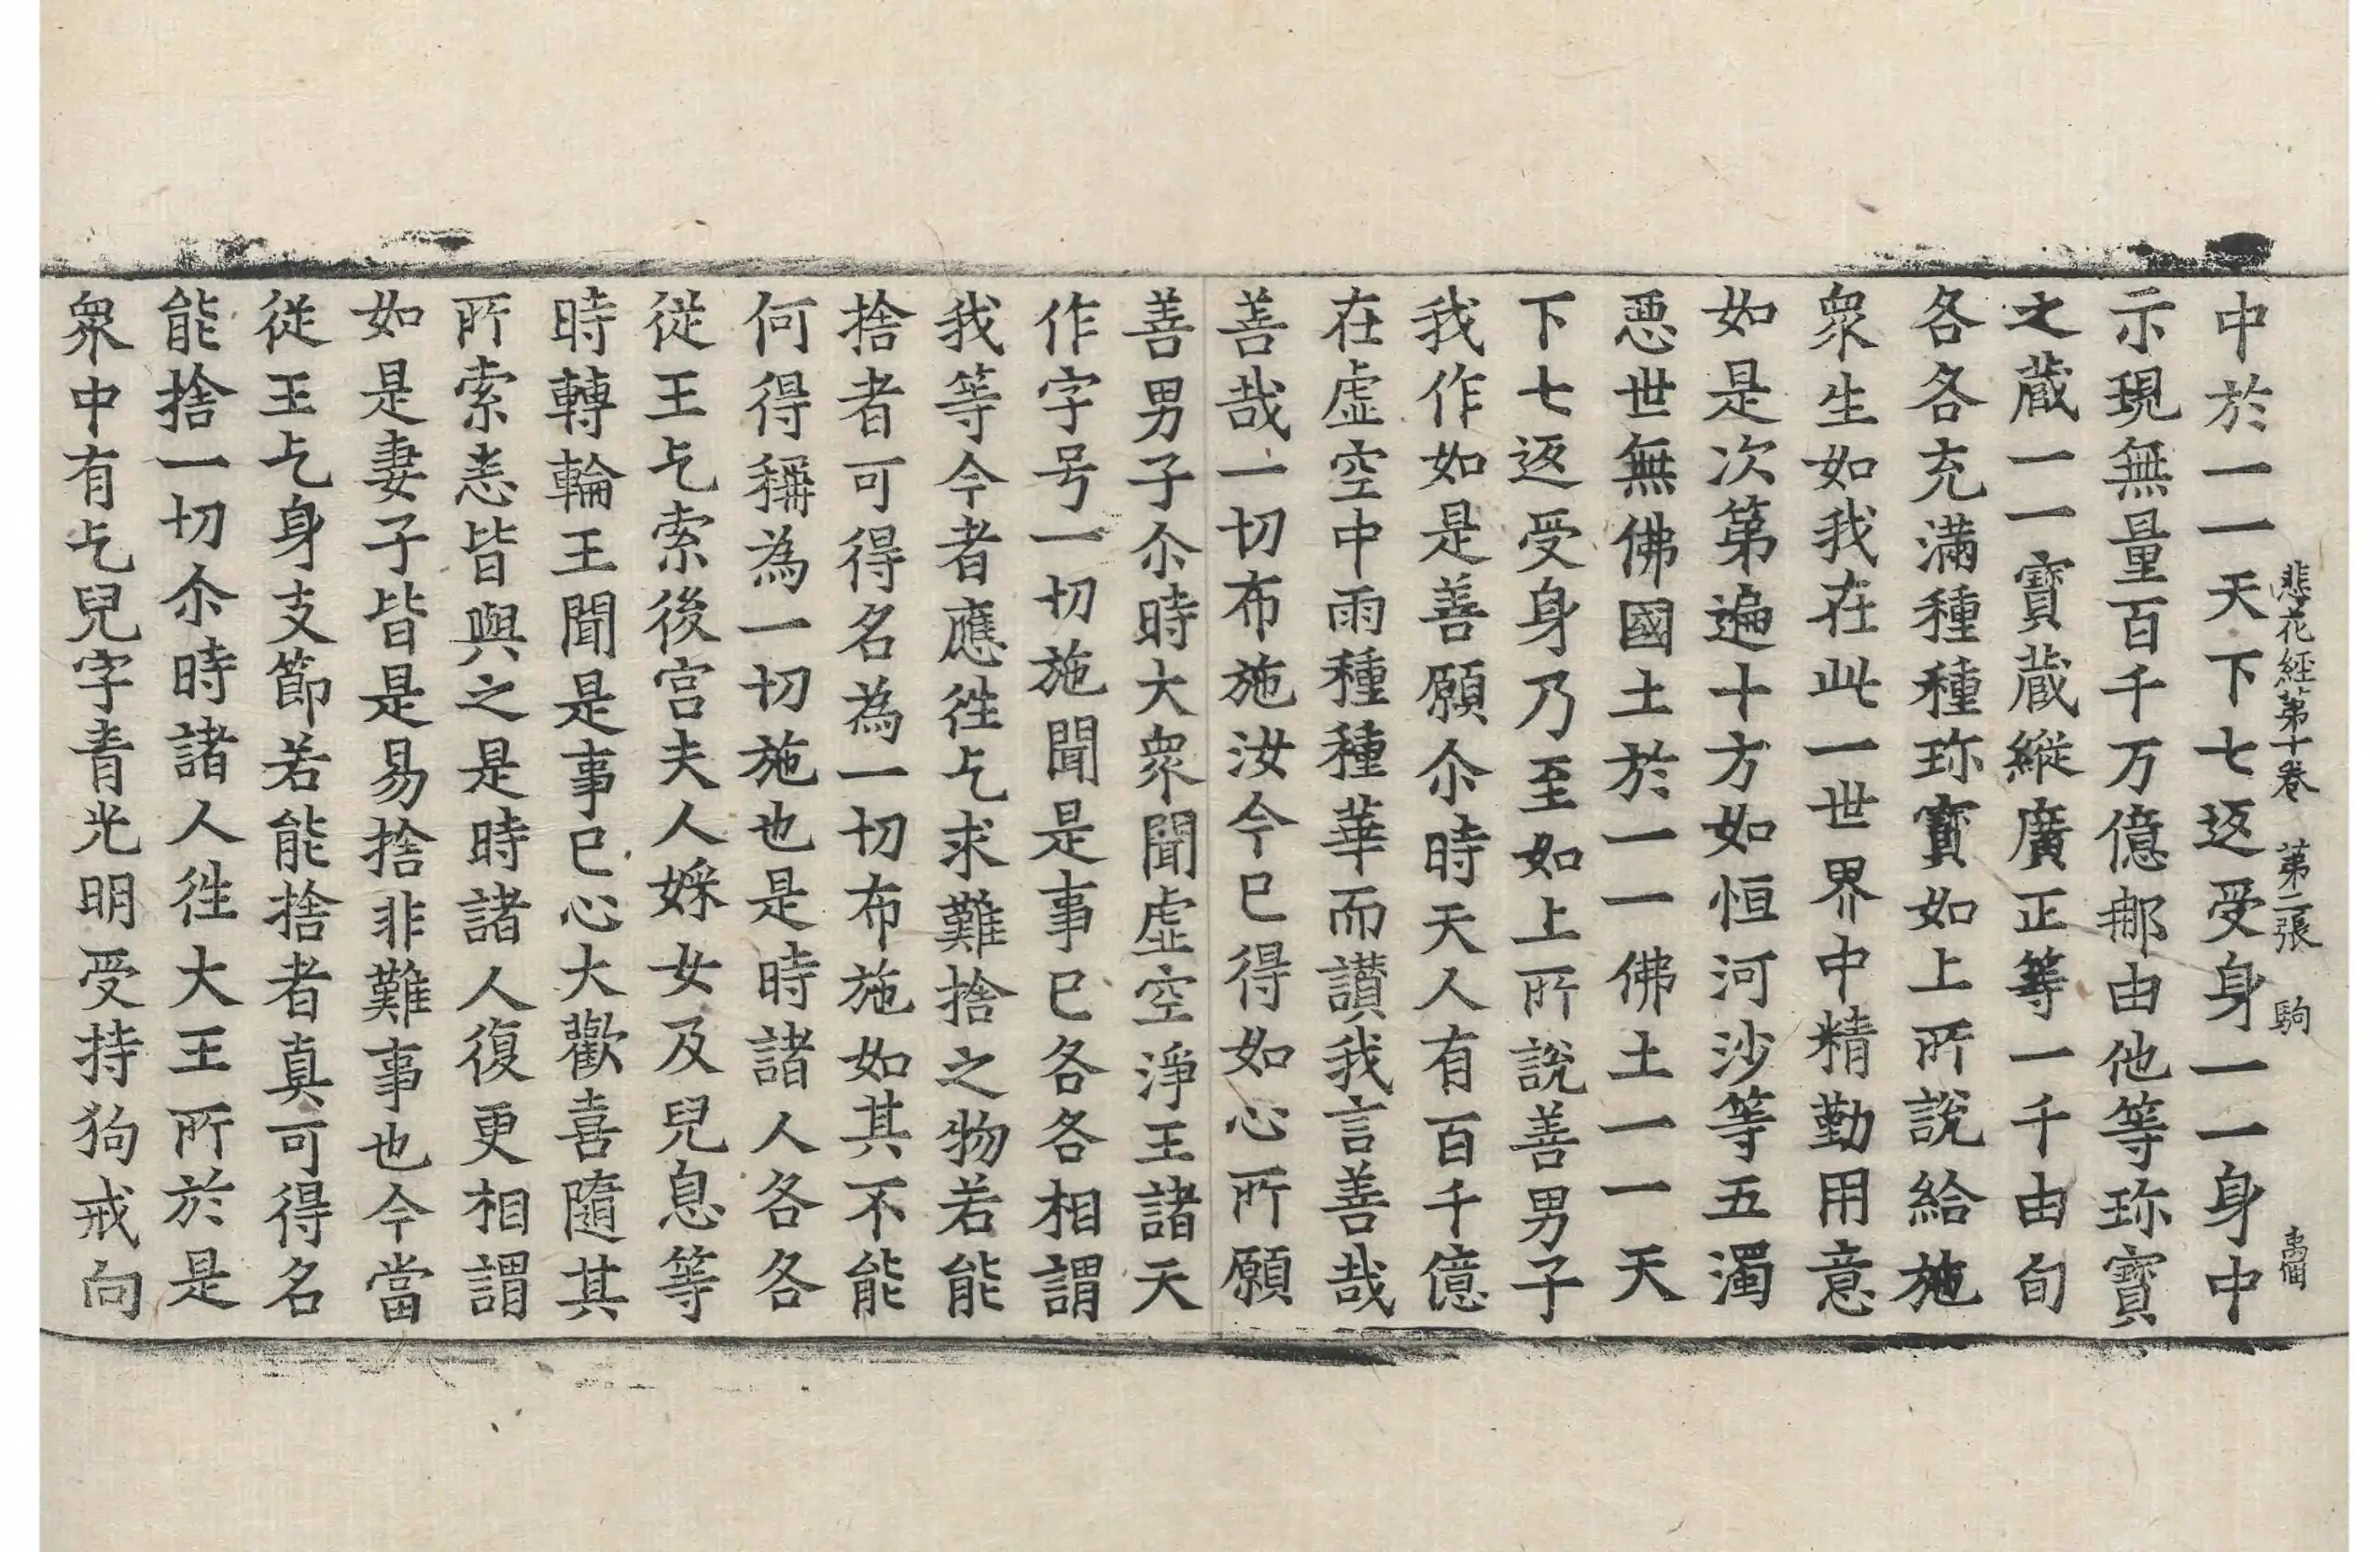 悲花經第十卷 第二張 駒
中於一一天下七返受身一一身中
示現無量百千万億那由他等珎寶
之蔵一一寶蔵縱廣正等一千由旬
各各充滿種種珎寶如上所說給施
衆生如我在此一世界中精勤用意
如是次第遍十方如恒河沙等五濁
惡世無佛國土於一一佛土一一天
下七返受身乃至如上所說善男子
我作如是善願尒時天人有百千億
在虛空中雨種種華而讃我言善哉
善哉一切布施汝今已得如心所願
善男子尒時大衆聞虛空淨王諸天
作字号一切施聞是事已各各相謂
我等今者應徃乞求難捨之物若能
捨者可得名為一切布施如其不能
何得稱為一切施也是時諸人各各
從王乞索後宫夫人婇女及兒息等
時轉輪王聞是事已心大歡喜隨其
所索悉皆與之是時諸人復更相謂
如是妻子皆是易捨非難事也今當
從王乞身支節若能捨者真可得名
能捨一切尒時諸人徃大王所於是
衆中有乞兒字青光明受持狗戒向